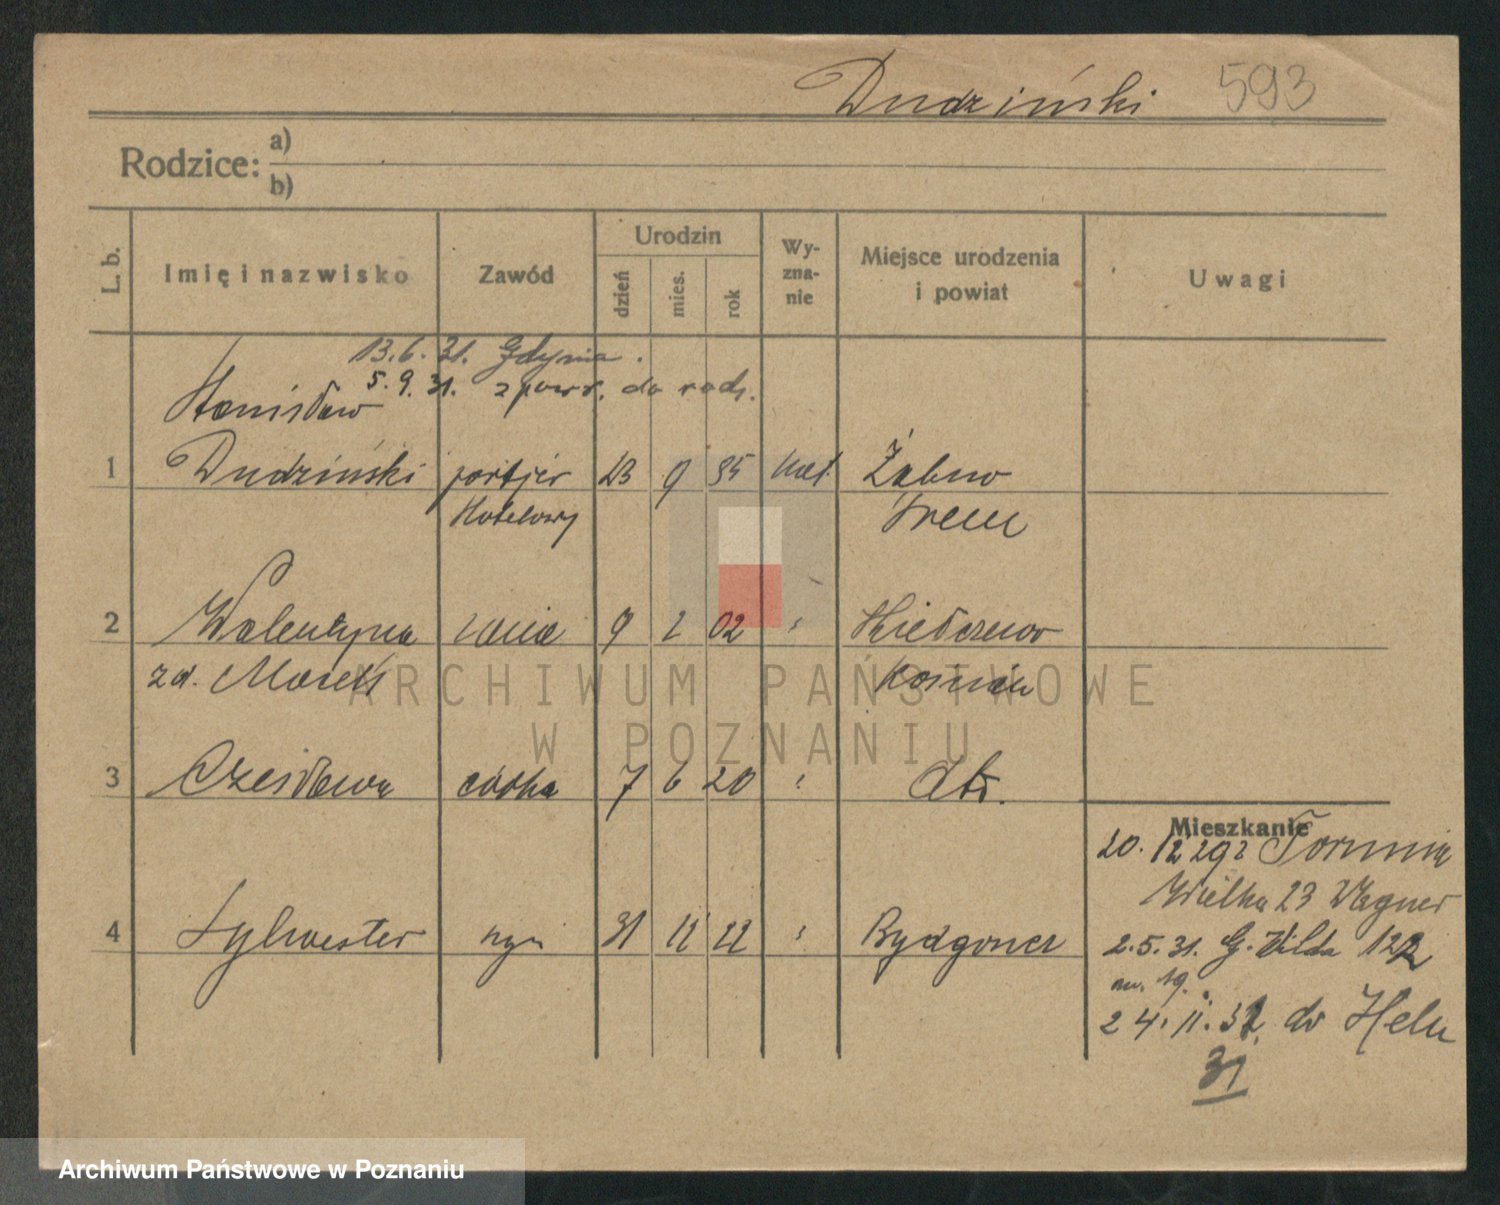 Dudziński 593
Rodzice: a)
b)
L. b. Imię i nazwisko Zawód Urodzin dzień mies. rok Wy-zna-nie Miejsce urodzenia i powiat Uwagi
13.6.31. Gdynia.
5.9.31. z powr. do rodz.
Stanisław
1 Dudziński portjer 23 9 95 kat. Żabno
Hotelowy Śrem
2 Walentyna żona 9 2 02 Kiełczewo
zd. Marek Kościan
3 Czesława córka 7 6 20 dto.
Mieszkanie
20. 12 29 z Torunia
Wielka 23 Wagner
4 Sylwester syn 31 12 22 Bydgoszcz
2.5.31. G. Wilda 122
m. 19.
24. 11. 31. do Helu
31
ARCHIWUM PAŃSTWOWE
W POZNANIU
Archiwum Państwowe w Poznaniu